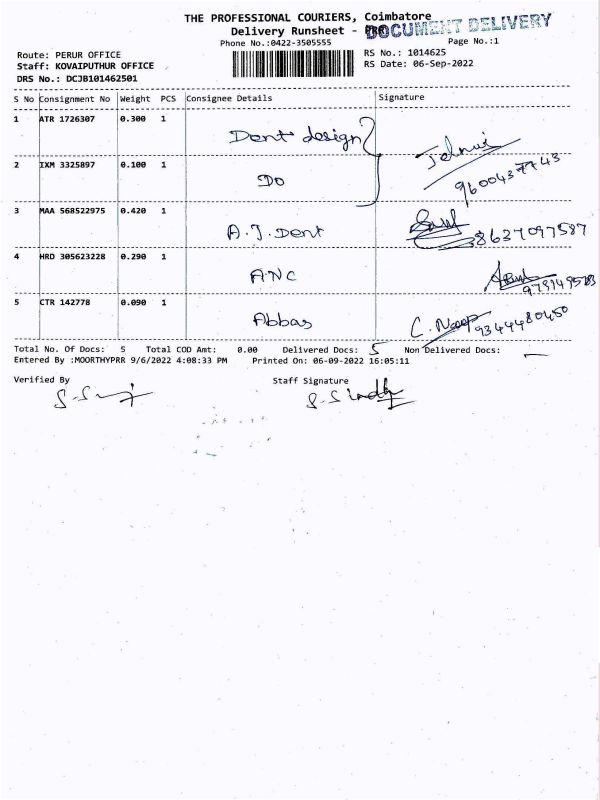 THE PROFESSIONAL COURIERS, Coimbatore
Delivery Runsheet - PRO
DOCUMENT DELIVERY
Phone No.:0422-3505555
Page No.:1
Route: PERUR OFFICE
RS No.: 1014625
Staff: KOVAIPUTHUR OFFICE
RS Date: 06-Sep-2022
DRS No.: DCJB101462501
S No Consignment No Weight PCS Consignee Details Signature
1 ATR 1726307 0.300 1 Dent design
2 IXM 3325897 0.100 1 Do 9600437743
3 MAA 568522975 0.420 1 A.J. Dent 8637097587
4 HRD 305623228 0.290 1 ANC
5 CTR 142778 0.090 1 Abbas 9344480450
Total No. Of Docs: 5 Total COD Amt: 0.00 Delivered Docs: 5 Non Delivered Docs: —
Entered By :MOORTHYPRR 9/6/2022 4:08:33 PM Printed On: 06-09-2022 16:05:11
Verified By Staff Signature